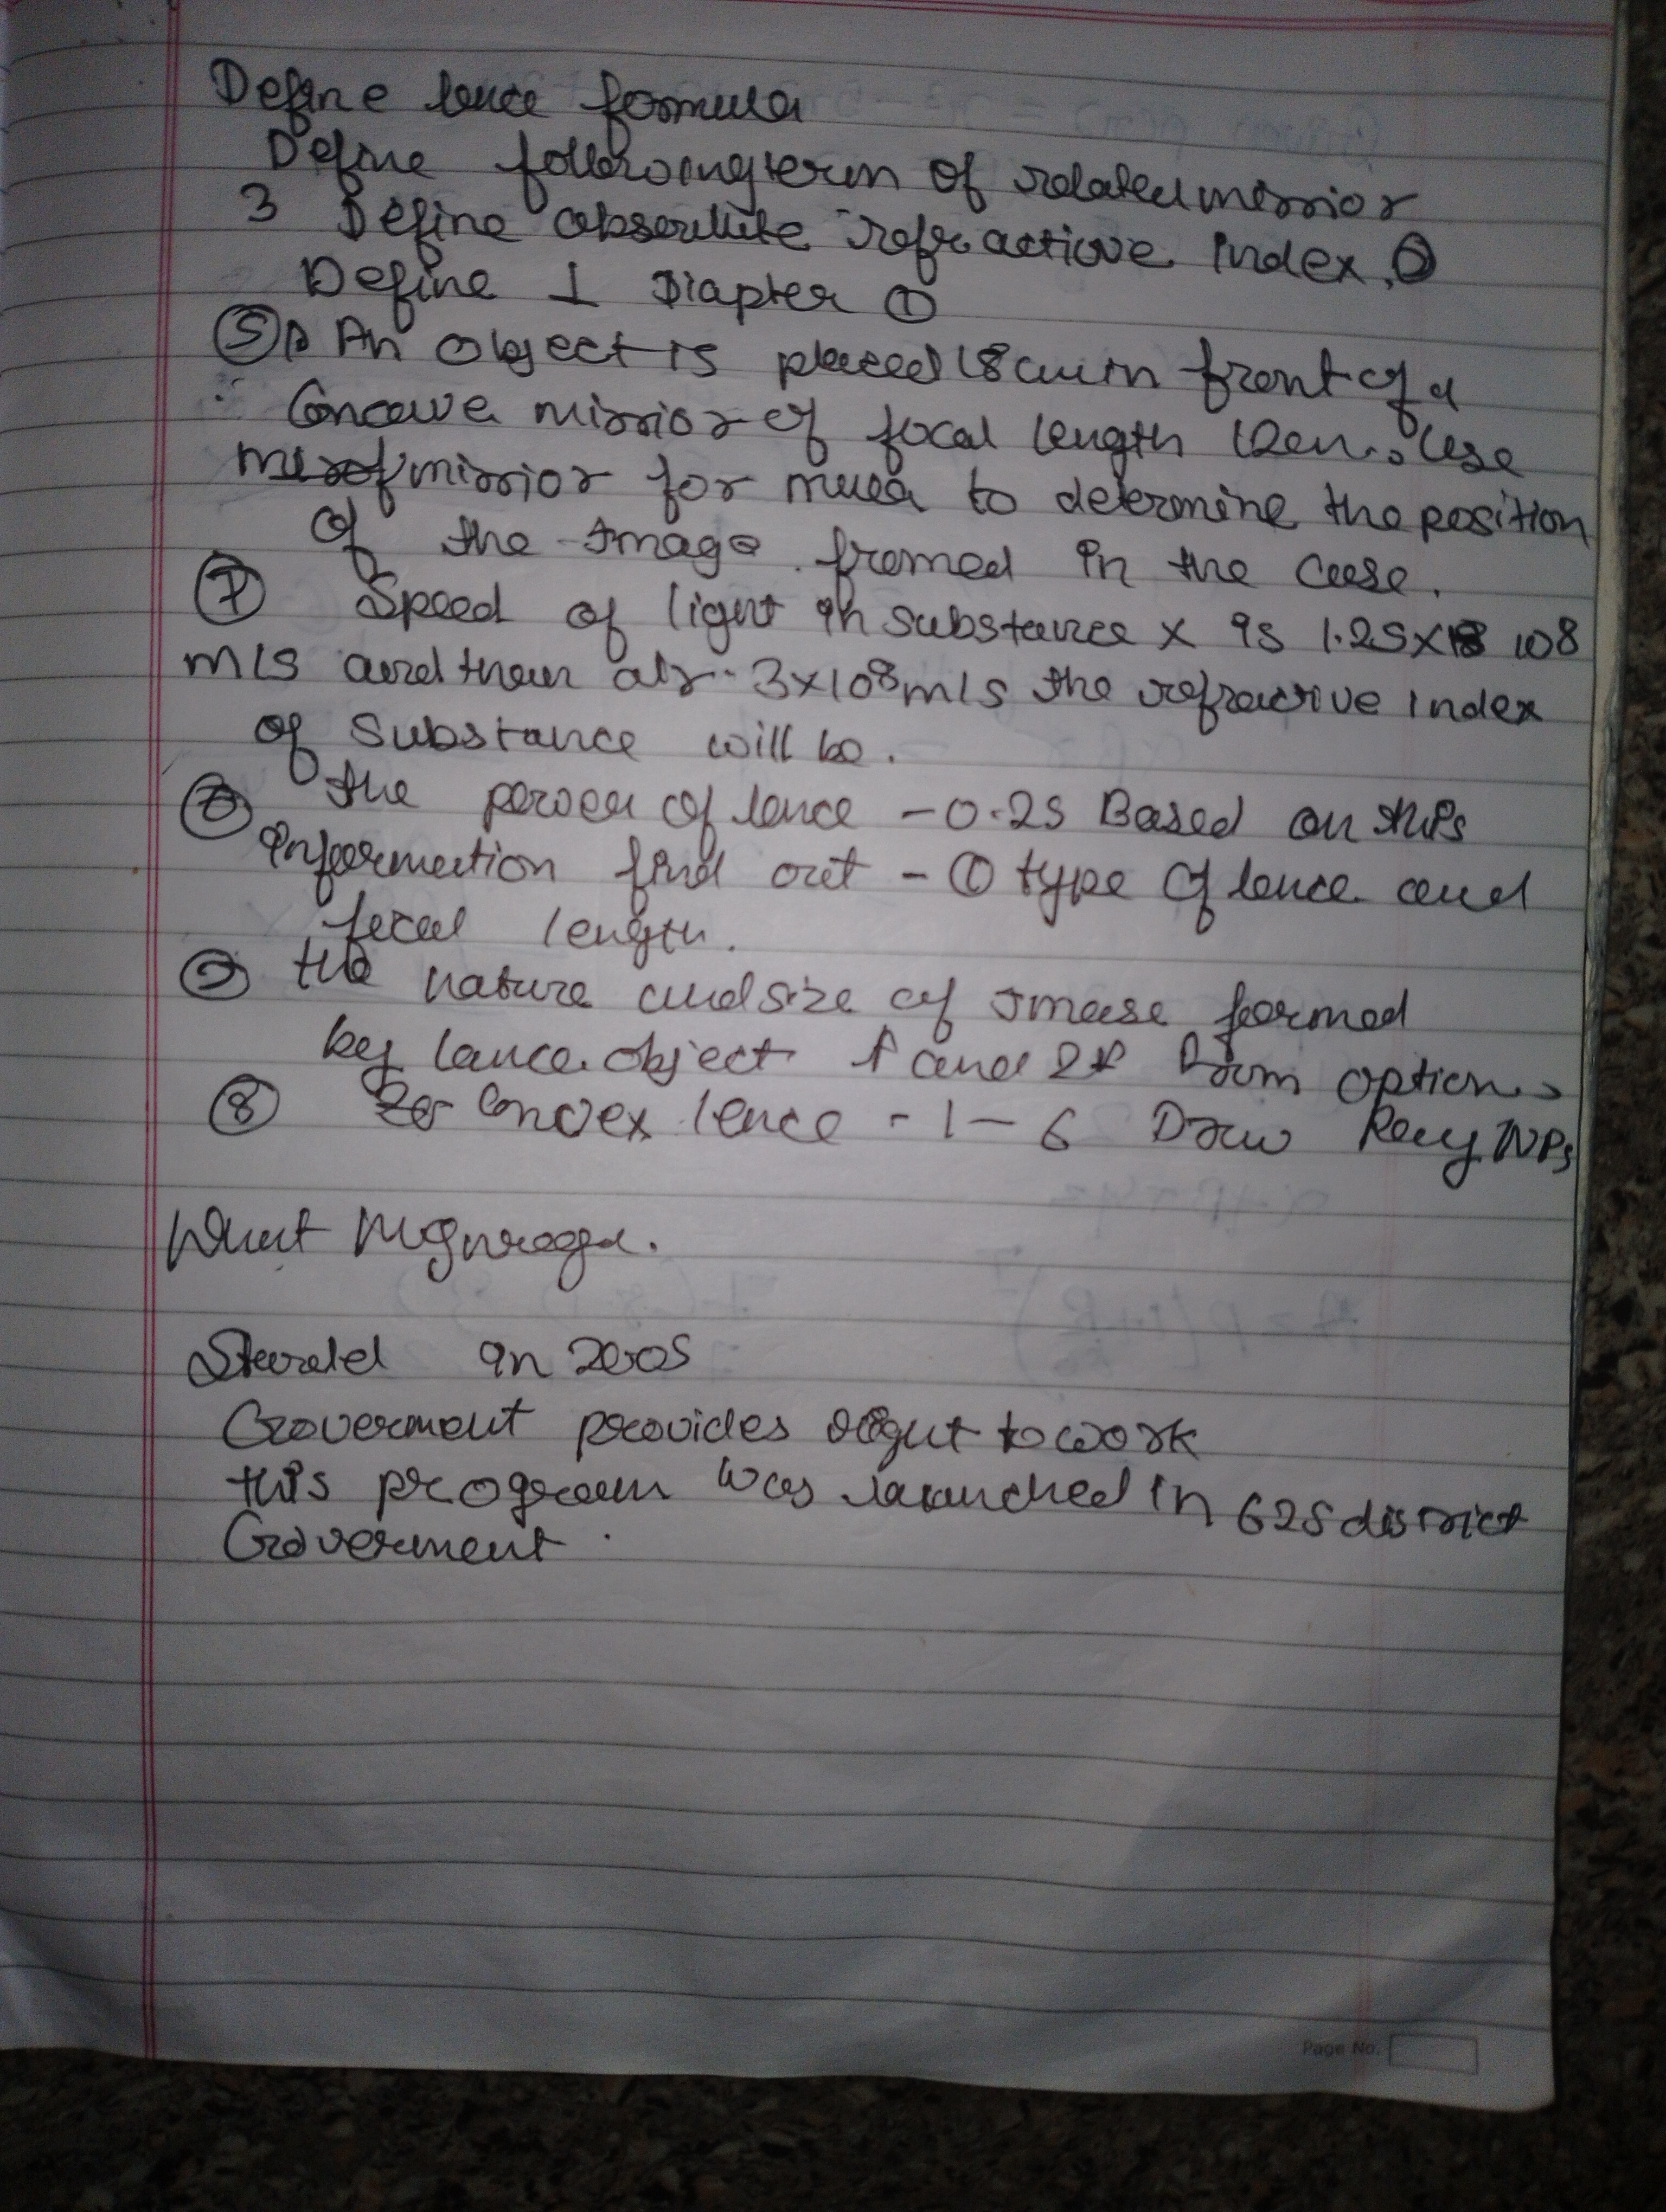 Define lence formula
Define following term of related mirrior
3 Define obserlute refractive index.
Define 1 Diapter ①
⑤ An object is placed 18cm in front of a
Concave mirrior of focal length 12cm. Use
mirrior for mula to determine the position
of the Image fromed in the case.
⑦ Speed of light in substance x is 1.25x 108
m/s and then air 3x10⁸m/s the refractive index
of substance will be.
the power of lence -0.25 Based on this
information find out - ① type of lence and
focal length.
the nature and size of Imase formed
by lence object f and 2f from option
⑧ Convex lence - 1 - 6 Draw Ray
What Mgnrega.
Started in 2005
Goverment provides right to work
this program was launched in 625 district
Goverment
Page No.